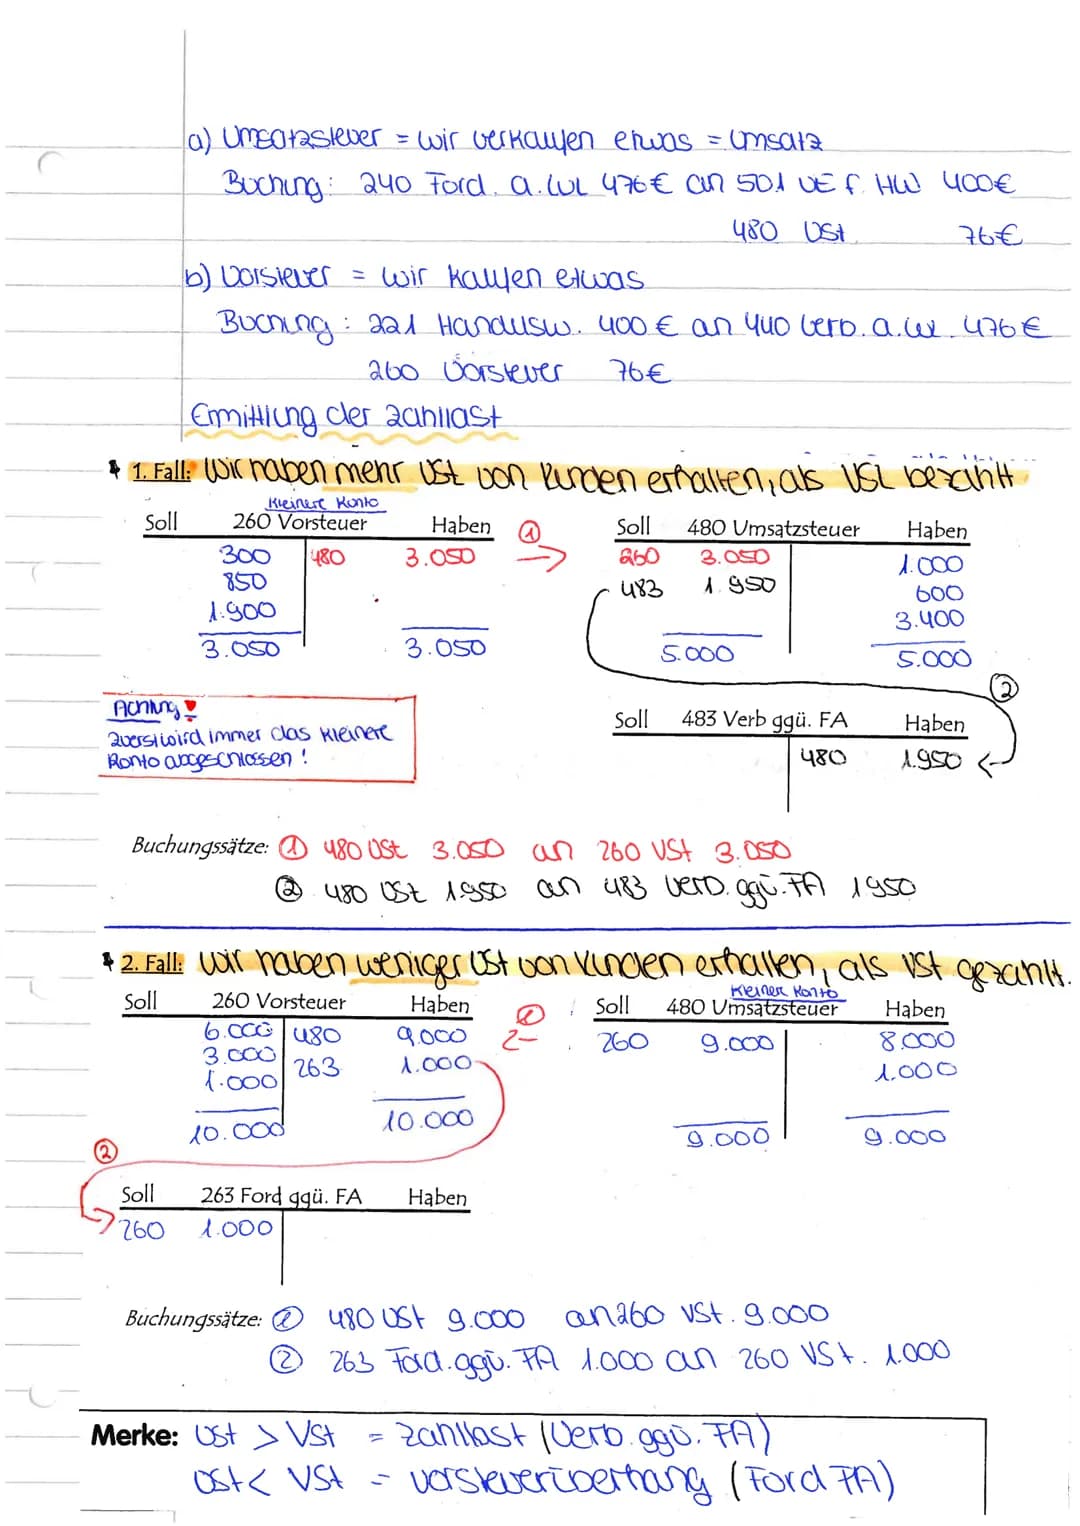 a) Umsatzsteuer = wir verkaufen etwas = Umsatz
Buchung: 240 Ford. a. LuL 476€ an 501 UE f. HW 400€
480 USt. 76€
b) Vorsteuer = wir kaufen etwas
Buchung: 221 Handelsw. 400 € an 440 Verb. a. LuL. 476€
260 Vorsteuer 76€
Ermittlung der Zahllast
1. Fall: Wir haben mehr USt von Kunden erhalten, als VSt bezahlt
kleinere Konto
Soll 260 Vorsteuer Haben ① Soll 480 Umsatzsteuer Haben
300 480 3.050 260 3.050 1.000
850 483 1.950 600
1.900 3.400
3.050 3.050 5.000 5.000
②
Achtung!
Zuerst wird immer das kleinere
Konto abgeschlossen!
Soll 483 Verb ggü. FA Haben
480 1.950
Buchungssätze: ① 480 USt 3.050 an 260 VSt 3.050
② 480 USt 1950 an 483 Verb. ggü. FA 1950
2. Fall: Wir haben weniger USt von Kunden erhalten, als VSt gezahlt.
kleiner Konto
Soll 260 Vorsteuer Haben ① Soll 480 Umsatzsteuer Haben
6.000 480 9.000 260 9.000 8.000
3.000 263 1.000 1.000
1.000
10.000 10.000 9.000 9.000
②
Soll 263 Ford ggü. FA Haben
260 1.000
Buchungssätze: ① 480 USt 9.000 an 260 VSt. 9.000
② 263 Ford. ggü. FA 1.000 an 260 VSt. 1.000
Merke: USt > VSt = Zahllast (Verb. ggü. FA)
USt < VSt = Vorsteuerüberhang (Ford FA)